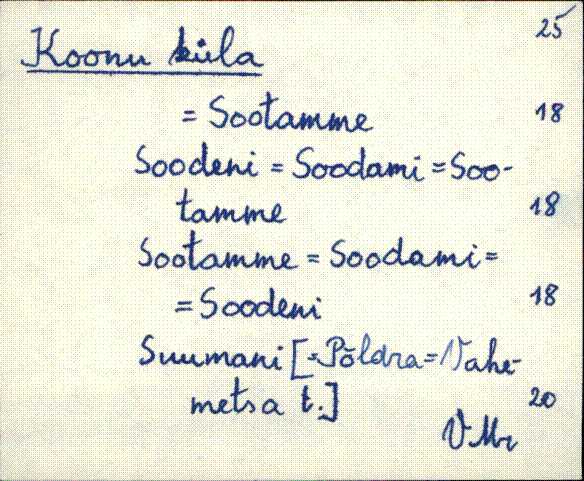 25
Koonu küla
= Sootamme 18
Soodeni = Soodami = Soo-
tamme 18
Sootamme = Soodami =
= Soodeni 18
Suumani [=Põldra=Vahe-
metsa t.] 20
VMr